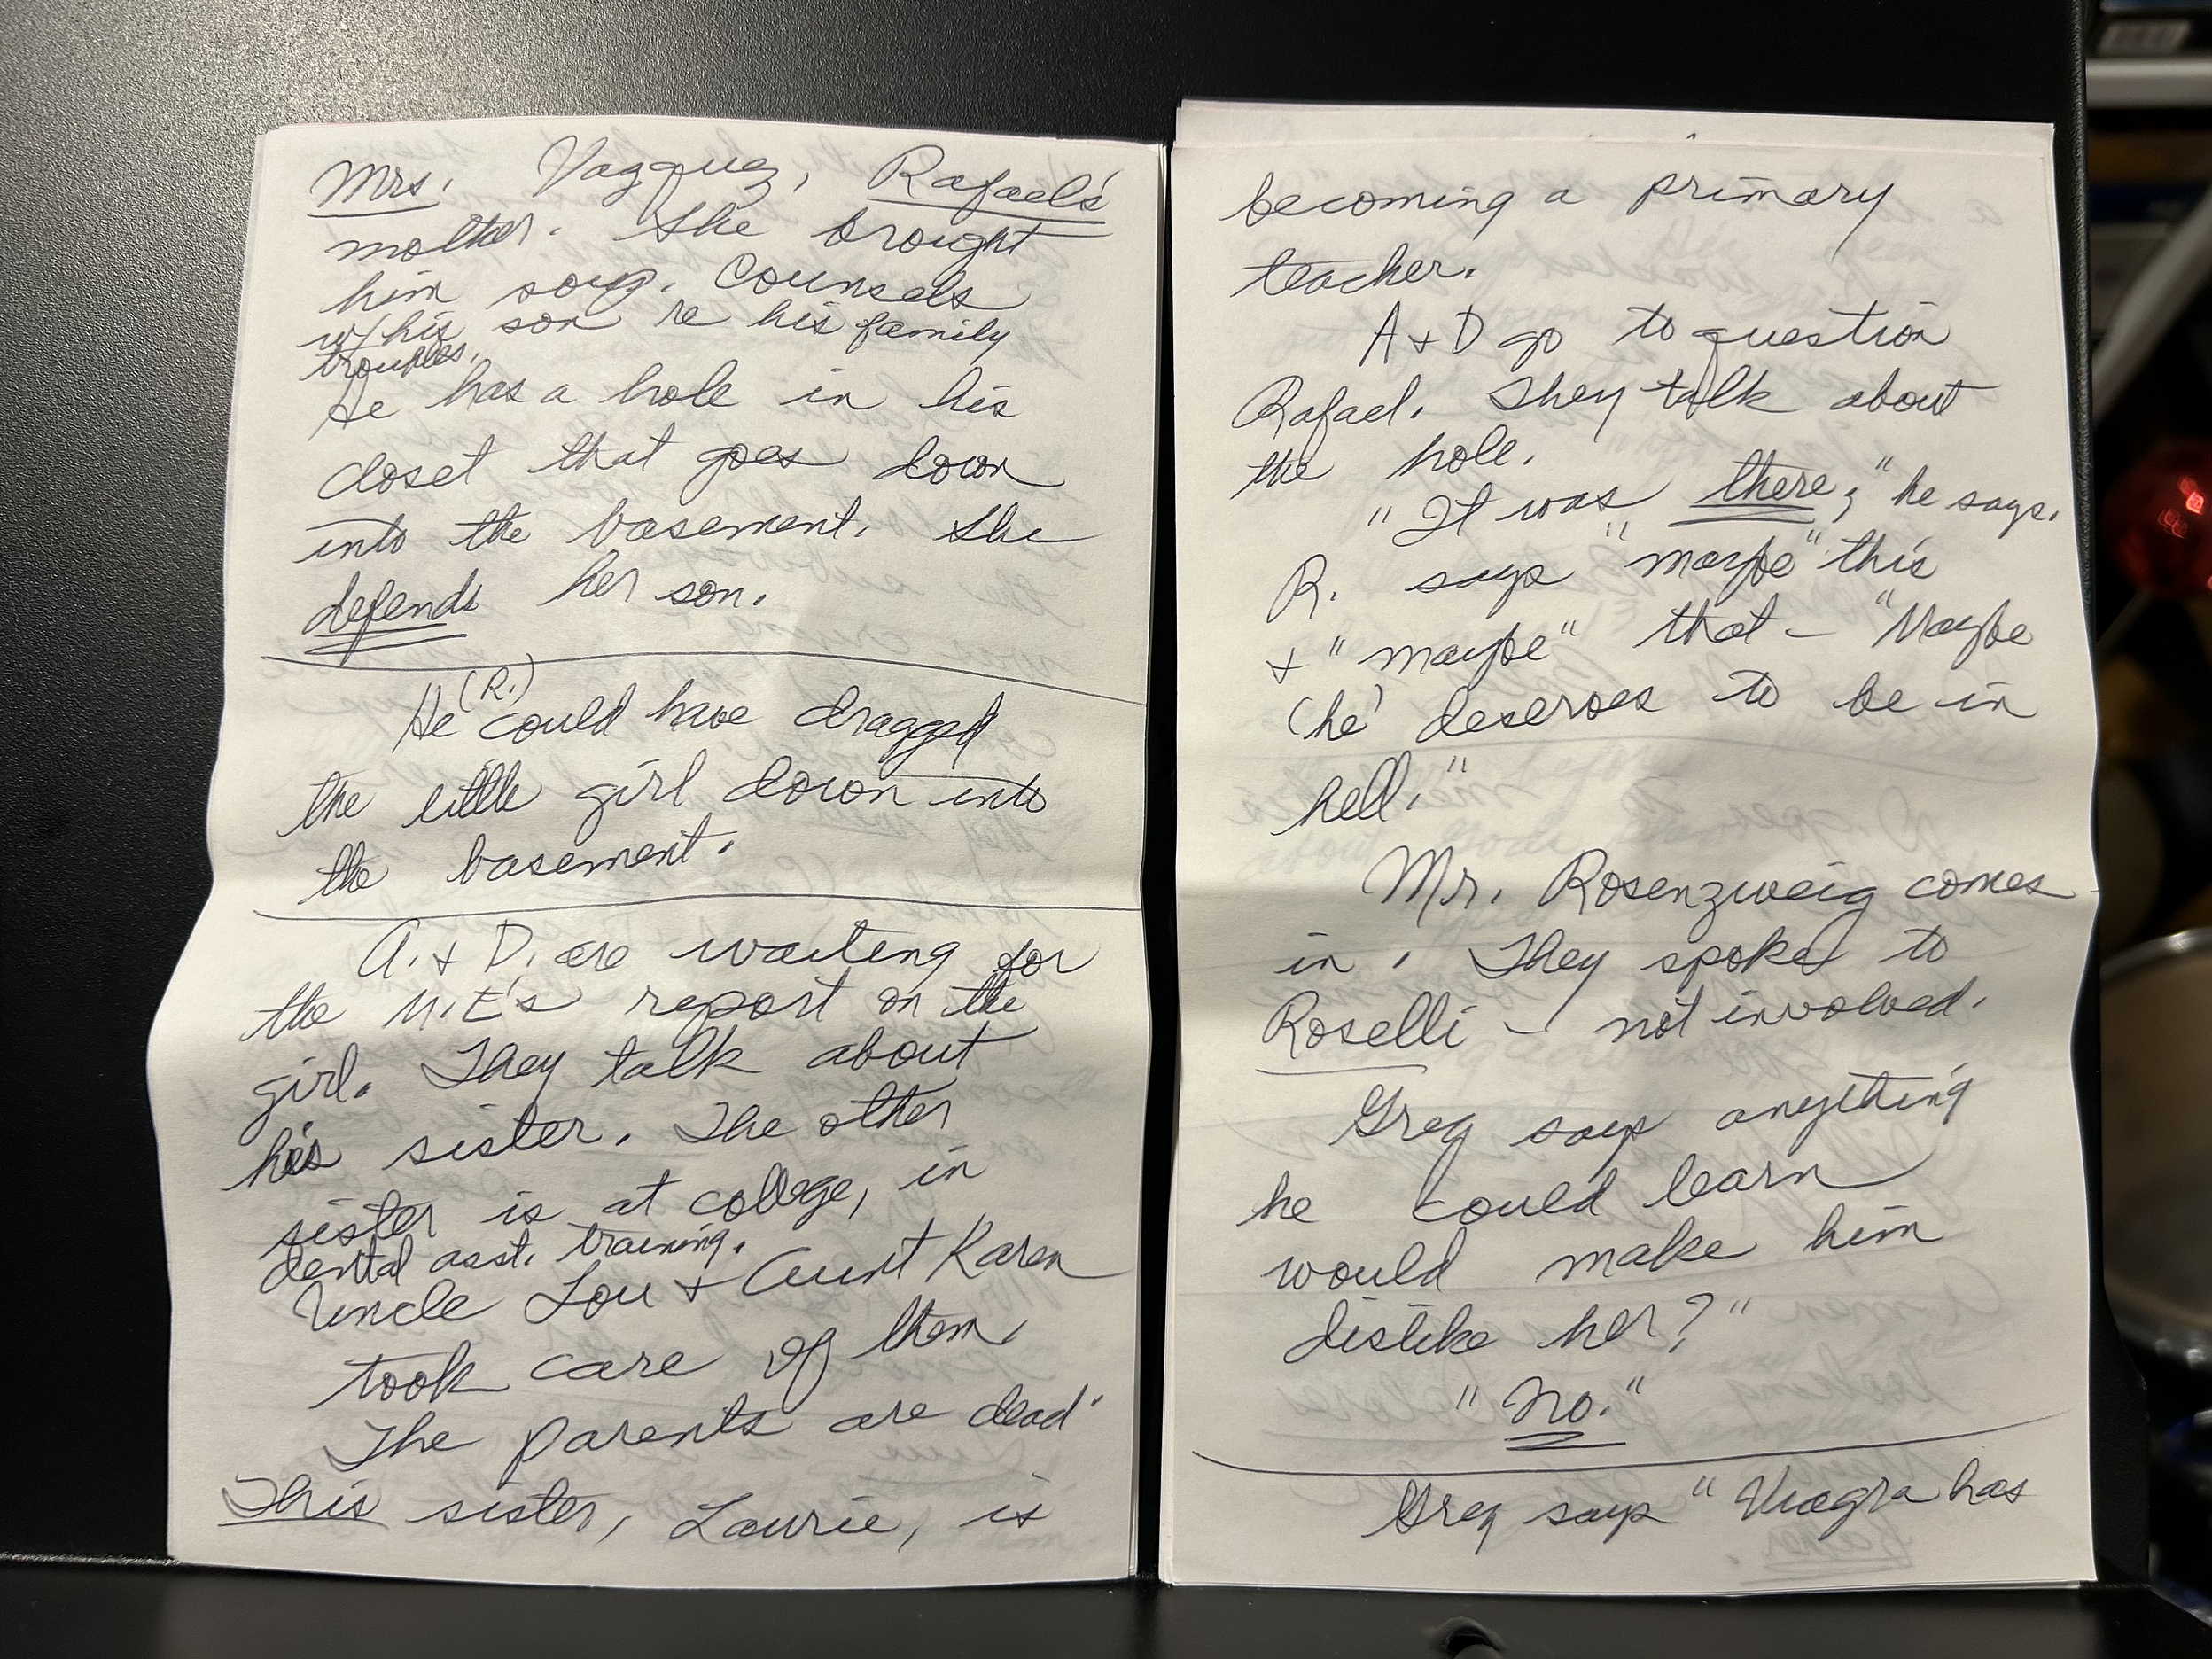 Mrs. Vazquez, Rafael's
mother. She brought
him soup. Counsels
w/ his son re his family
troubles.
He has a hole in his
closet that goes down
into the basement. She
defends her son.
He (R.) could have dragged
the little girl down into
the basement.
A. + D. are waiting for
the M.E's report on the
girl. They talk about
his sister. The other
sister is at college, in
dental asst. training.
Uncle Lou + Aunt Karen
took care of them.
The parents are dead.
This sister, Laurie, is
becoming a primary
teacher.
A + D go to question
Rafael. They talk about
the hole.
"It was there," he says.
R. says "maybe" this
+ "maybe" that – "Maybe
(he) deserves to be in
hell."
Mr. Rosenzweig comes
in. They spoke to
Roselli – not involved.
Greg says anything
he could learn
would make him
dislike her?"
"No."
Greg says "Viagra has